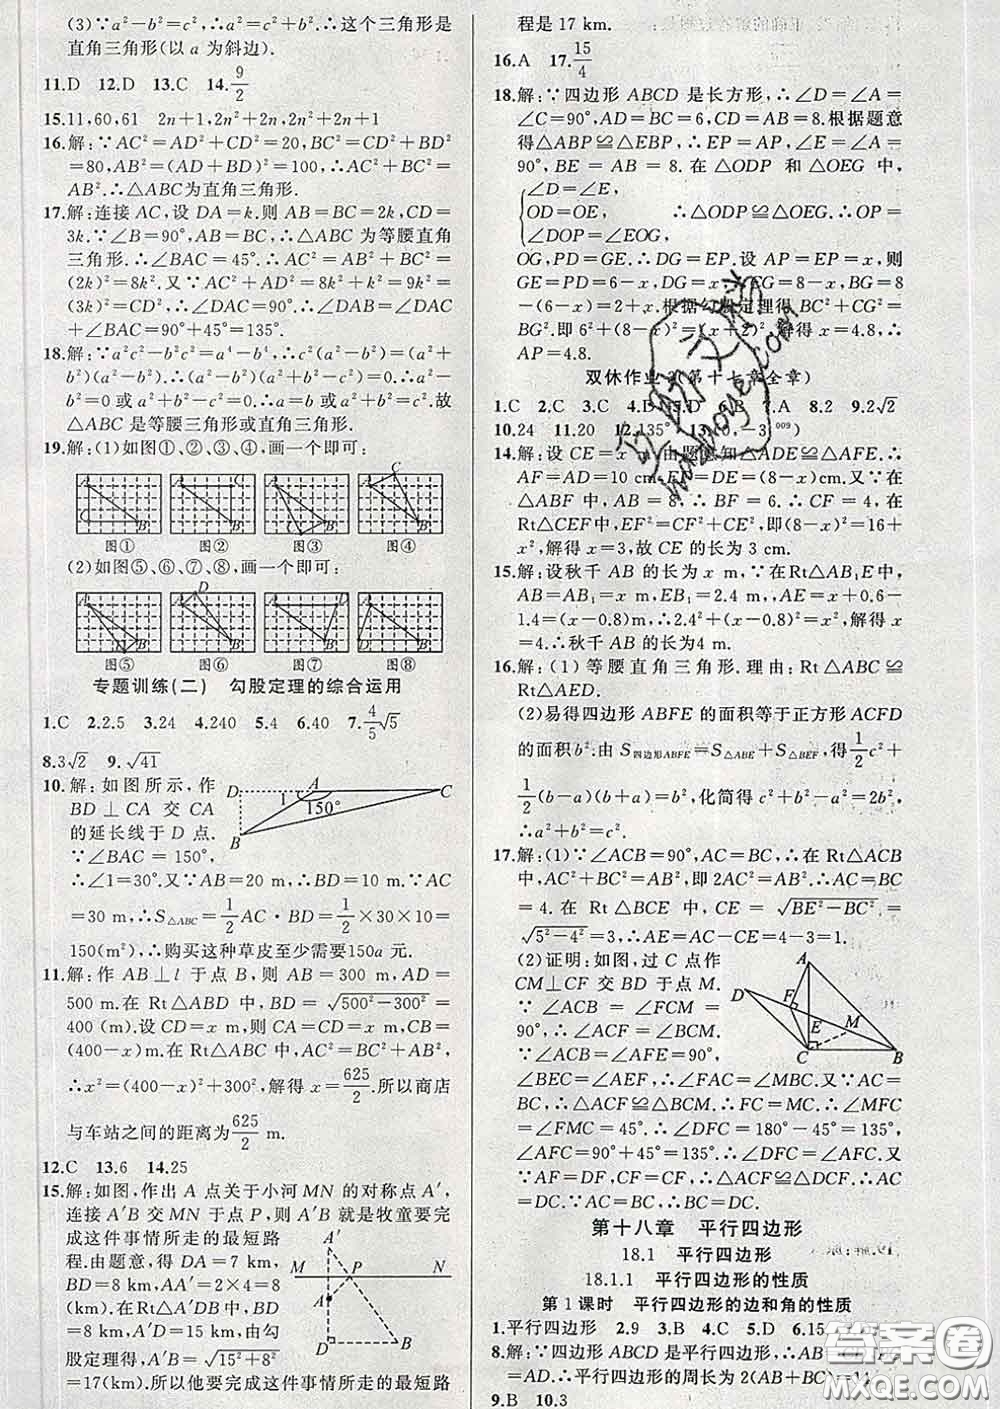 (3)∵a²-b²=c²,∴a²=b²+c².∴这个三角形是
直角三角形(以 a 为斜边).
11.D 12.D 13.C 14.9/2
15.11,60,61 2n+1,2n²+2n,2n²+2n+1
16.解:∵AC²=AD²+CD²=20,BC²=CD²+BD²
=80,AB²=(AD+BD)²=100,∴AC²+BC²=
AB².∴△ABC为直角三角形.
17.解:连接 AC,设 DA=k.则 AB=BC=2k,CD=
3k.∵∠B=90°,AB=BC,∴△ABC 为等腰直角
三角形.∴∠BAC=45°.∴AC²=AB²+BC²=2×
(2k)²=8k².又∵AC²+AD²=8k²+k²=9k²=
(3k)²=CD²,∴∠DAC=90°.∴∠DAB=∠DAC
+∠BAC=90°+45°=135°.
18.解:∵a²c²-b²c²=a⁴-b⁴,∴c²(a²-b²)=(a²+
b²)(a²-b²).∴(a²-b²)(c²-a²-b²)=0.∴a²-b²
=0 或 a²+b²=c².∴a=b 或 a²+b²=c².故
△ABC 是等腰三角形或直角三角形.
19.解:(1)如图①、②、③、④,画一个即可:
A B A C B A B C A C B
图① 图② 图③ 图④
(2)如图⑤、⑥、⑦、⑧,画一个即可:
图⑤ 图⑥ 图⑦ 图⑧
专题训练(二) 勾股定理的综合运用
1.C 2.2.5 3.24 4.240 5.4 6.40 7.4/5√5
8.3√2 9.√41
10.解:如图所示,作
BD⊥CA 交 CA
的延长线于 D 点.
∵∠BAC=150°,
D A C 1 150° B
∴∠1=30°.又∵AB=20 m,∴BD=10 m.∵AC
=30 m,∴S△ABC=1/2AC·BD=1/2×30×10=
150(m²),∴购买这种草皮至少需要150a 元.
11.解:作 AB⊥l 于点 B,则 AB=300 m,AD=
500 m.在 Rt△ABD 中,BD=√(500²-300²)=
400 (m).设 CD=x m,则 AC=x m,CB=
(400-x)m.在 Rt△ABC 中,AC²=BC²+AB²,
∴x²=(400-x)²+300²,解得 x=625/2.所以商店
与车站之间的距离为625/2 m.
12.C 13.6 14.25
15.解:如图,作出 A 点关于小河 MN 的对称点 A′,
连接 A′B 交 MN 于点 P,则 A′B 就是牧童要完
成这件事情所走的最短路
程.由题意,得 DA=7 km,
BD=8 km,AA′=2×4=8
(km).在 Rt△A′DB 中,BD
=8 km,A′D=15 km,由勾
股定理,得 A′B=√(15²+8²)
=17(km).所以他要完成这件事情所走的最短路
A′ M P N A D B
程是 17 km.
16.A 17.15/4
18.解:∵四边形 ABCD 是长方形,∴∠D=∠A=
∠C=90°,AD=BC=6,CD=AB=8.根据题意
得△ABP≌△EBP,∴EP=AP,∠E=∠A=
90°,BE = AB = 8.在△ODP 和△OEG 中,
∠D=∠E,
OD=OE,
∠DOP=∠EOG,
∴△ODP≌△OEG.∴OP=
OG,PD=GE.∴DG=EP.设 AP=EP=x,则
GE=PD=6-x,DG=x.∴CG=8-x,BG=8
-(6-x)=2+x.根据勾股定理得 BC²+CG²=
BG².即 6²+(8-x)²=(x+2)².解得 x=4.8,∴
AP=4.8.
双休作业2(第十七章全章)
1.C 2.C 3.C 4.D 5.D 6.B 7.A 8.2 9.2√2
10.24 11.20 12.135°
14.解:设 CE=x cm.由题意知△ADE≌△AFE.∴
AF=AD=10 cm,EF=DE=(8-x)cm.又∵在
△ABF 中,AB = 8,∴ BF = 6.∴ CF = 4,在
Rt△CEF中,EF²=CF²+CE²,即(8-x)²=16+
x²,解得 x=3,故 CE 的长为 3 cm.
15.解:设秋千 AB 的长为 x m,∵在Rt△AB₁E中,
AB=AB₁=x m,EB₁=2.4 m,AE=x+0.6-
1.4=(x-0.8)m,∴2.4²+(x-0.8)²=x².解得 x
=4.∴秋千 AB 的长为4 m.
16.解:(1)等腰直角三角形.理由:Rt△ABC≌
Rt△AED.
(2)易得四边形 ABFE 的面积等于正方形 ACFD
的面积 b².由 S四边形ABFE=S△ABE+S△BEF,得1/2c²+
1/2(b-a)(b+a)=b²,化简得 c²+b²-a²=2b²,
∴a²+b²=c².
17.解:(1)∵∠ACB=90°,AC=BC,∴在 Rt△ABC
中,AC²+BC²=AB²,即 2AC²=(4√2)².∴AC=BC
=4.在 Rt△BCE 中,CE=√(BE²-BC²)=
√(5²-4²)=3.∴AE=AC-CE=4-3=1.
(2)证明:如图,过 C 点作
CM⊥CF 交 BD 于点 M.
∵∠ACB=∠FCM=
90°,∴∠ACF=∠BCM.
∵∠ACB=∠AFE=90°,
A D F M E C B
∠BEC=∠AEF,∴∠FAC=∠MBC.又∵AC=
BC,∴△ACF≌△BCM.∴FC=MC.∴∠MFC
=∠FMC=45°.∴∠DFC=180°-45°=135°,
∠AFC=90°+45°=135°.∴∠AFC=∠DFC.又
∵AF=DF,CF=CF,∴△ACF≌△DCF.∴AC=
DC.∵AC=BC,∴BC=DC.
第十八章 平行四边形
18.1 平行四边形
18.1.1 平行四边形的性质
第1课时 平行四边形的边和角的性质
1.平行四边形 2.9 3.B 4.C 5.D 6.15
8.解:∵四边形 ABCD 是平行四边形,∴
AD.∴平行四边形的周长为 2(AB+BC)=14
9.B 10.3
答案圈
MXQE.COM